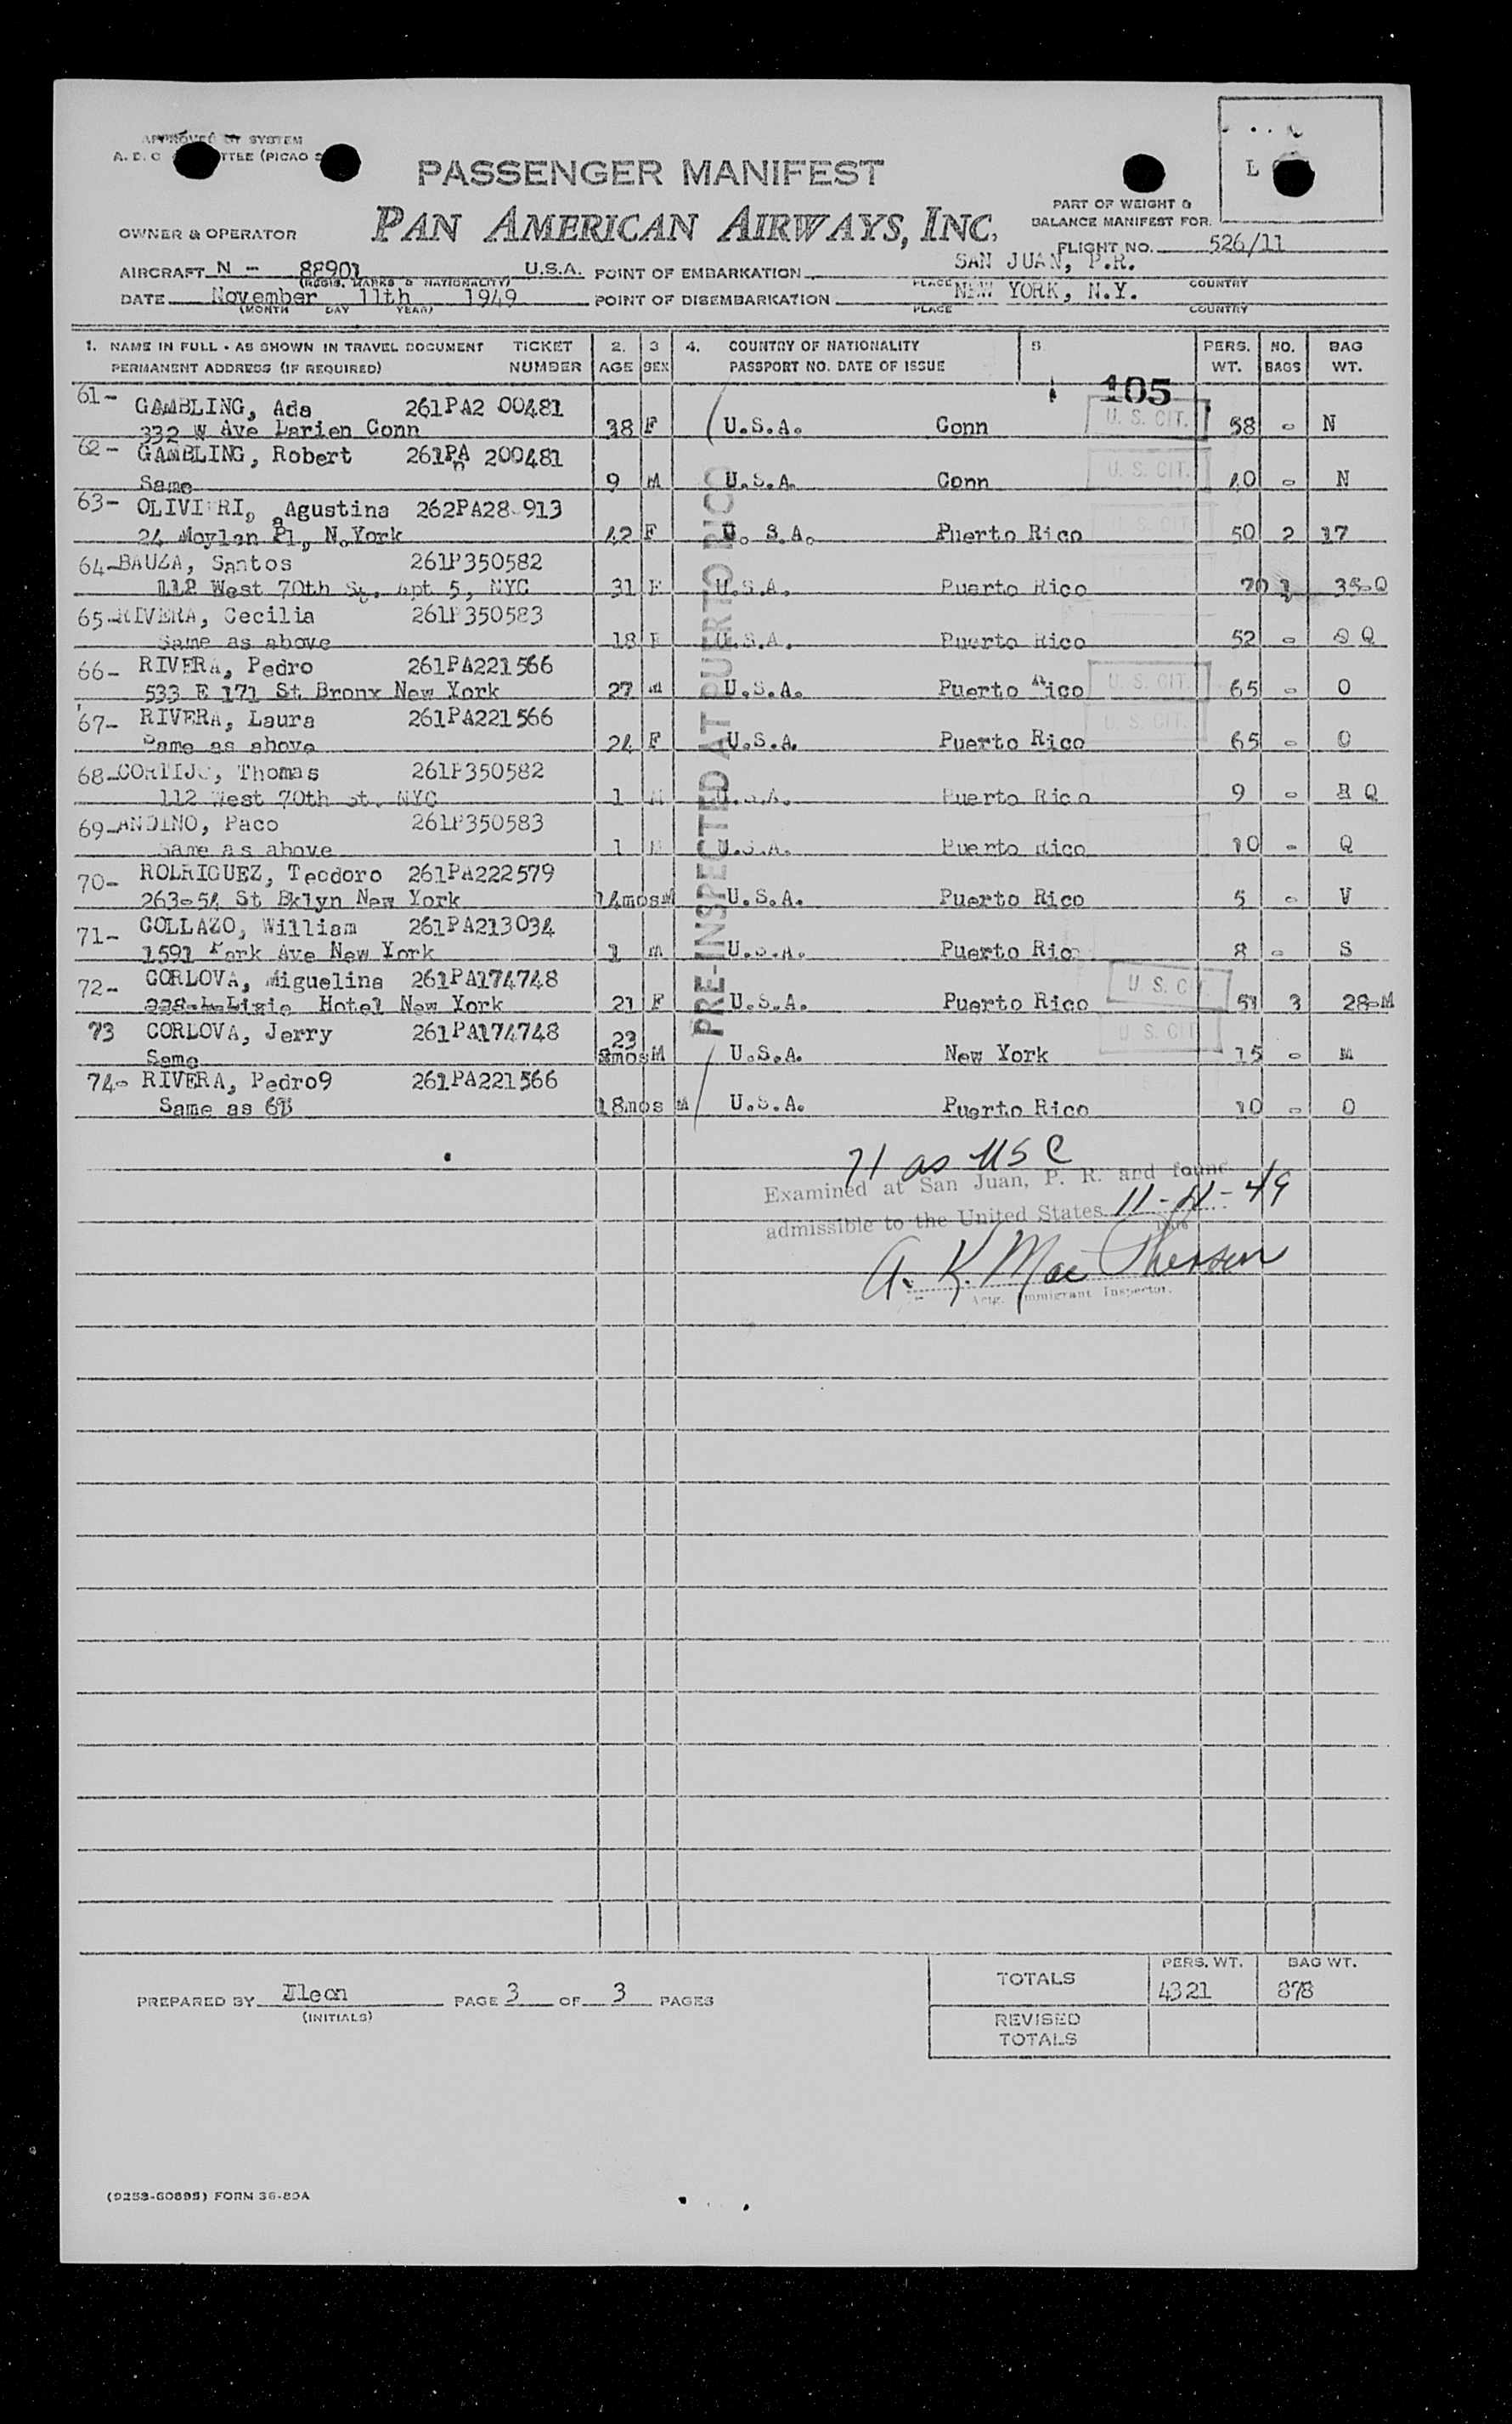 APPROVED BY SYSTEM
A. D. C
PASSENGER MANIFEST
L
PART OF WEIGHT &
BALANCE MANIFEST FOR
OWNER & OPERATOR
PAN AMERICAN AIRWAYS, INC.
FLIGHT NO. 526/11
AIRCRAFT N - 88901 U.S.A. POINT OF EMBARKATION SAN JUAN, P.R.
(REGIS. MARKS & NATIONALITY) PLACE COUNTRY
DATE November 11th 1949 POINT OF DISEMBARKATION NEW YORK, N.Y.
(MONTH DAY YEAR) PLACE COUNTRY
1. NAME IN FULL - AS SHOWN IN TRAVEL DOCUMENT TICKET 2. 3 4. COUNTRY OF NATIONALITY 5 PERS. NO. BAG
PERMANENT ADDRESS (IF REQUIRED) NUMBER AGE SEX PASSPORT NO. DATE OF ISSUE WT. BAGS WT.
105
61- GAMBLING, Ada 261PA2 00481
332 W Ave Darien Conn 38 F U.S.A. Conn U. S. CIT. 58 - N
62- GAMBLING, Robert 261PA 200481
Same 9 M U.S.A. Conn U. S. CIT. 40 - N
63- OLIVI RI, Agustina 262PA28 913
24 Moylan Pl, N.York 42 F U. S.A. Puerto Rico U. S. CIT. 50 2 17
64-BAUZA, Santos 261P350582
112 West 70th St. Apt 5, NYC 31 F U.S.A. Puerto Rico 70 1 35-Q
65-RIVERA, Cecilia 261P350583
Same as above 18 F U.S.A. Puerto Rico 52 - Q
66- RIVERA, Pedro 261PA221566
533 E 171 St Bronx New York 27 M U.S.A. Puerto Rico U. S. CIT. 65 - O
67- RIVERA, Laura 261PA221566
Same as above 24 F U.S.A. Puerto Rico U. S. CIT. 65 - O
68-CORTIJO, Thomas 261P350582
112 West 70th St. NYC 1 M U.S.A. Puerto Rico 9 - Q
69-ANDINO, Paco 261P350583
Same as above 1 M U.S.A. Puerto Rico 10 - Q
70- RODRIGUEZ, Teodoro 261PA222579
263-54 St Bklyn New York 14mos M U.S.A. Puerto Rico 5 - V
71- COLLAZO, William 261PA213034
1591 Park Ave New York 1 M U.S.A. Puerto Ric 8 - S
72- CORDOVA, Miguelina 261PA174748
Hotel New York 21 F U.S.A. Puerto Rico U. S. C 51 3 28-M
73 CORDOVA, Jerry 261PA174748 23
Same mos M U.S.A. New York U. S. CIT 15 - M
74- RIVERA, Pedro9 261PA221566
Same as 18mos M U.S.A. Puerto Rico 10 - O
PRE-INSPECTED AT PUERTO RICO
71 as USC
Examined at San Juan, P. R. and found
admissible to the United States 11-11-49
Date
A. K. MacPherson
Actg. Immigrant Inspector.
TOTALS PERS. WT. BAG WT.
4321 878
PREPARED BY PAGE 3 OF 3 PAGES
(INITIALS)
REVISED
TOTALS
FORM 36-80A